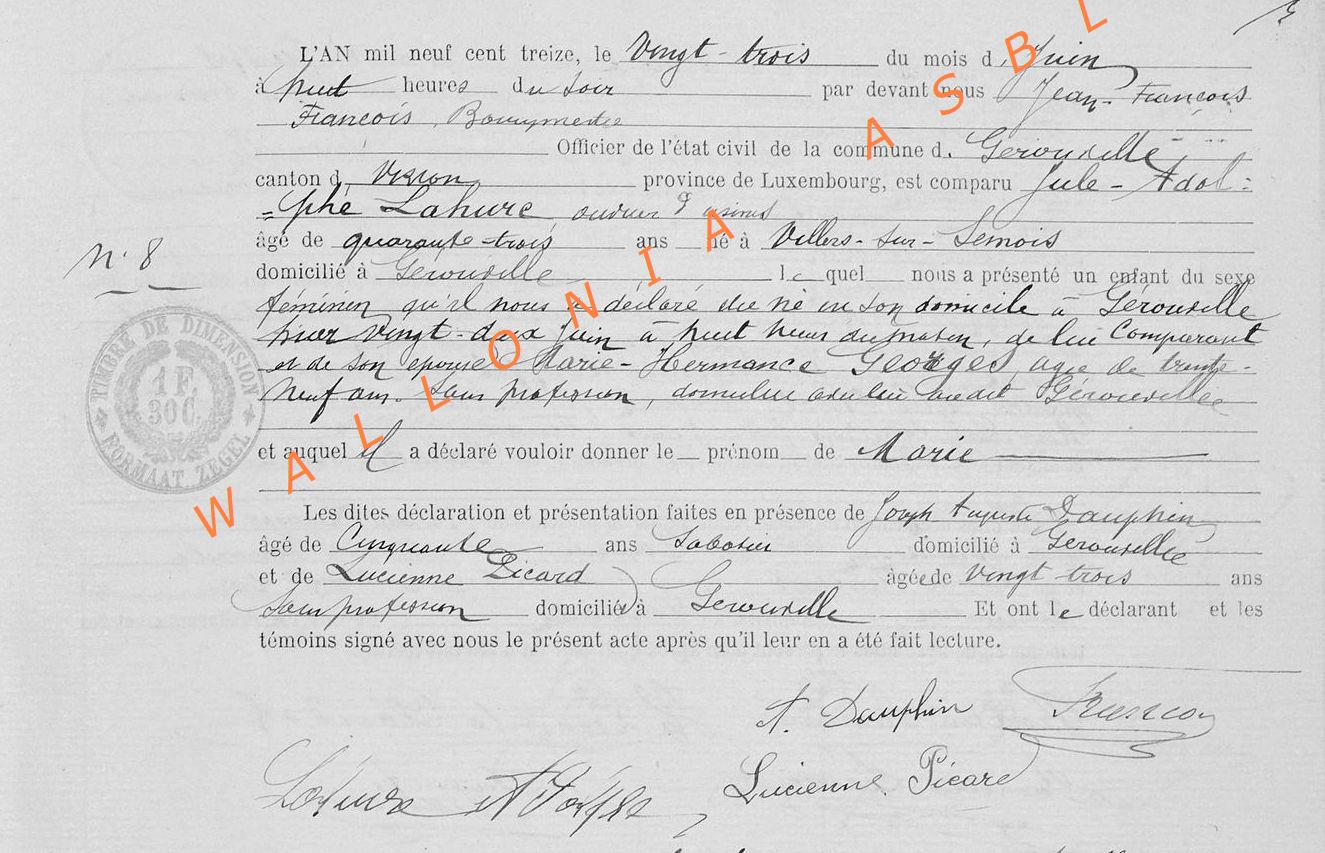 L'AN mil neuf cent treize, le Vingt-trois du mois d. Juin
à huit heures du soir par devant nous Jean-François
François
Officier de l'état civil de la commune d. Gérouville
canton d. Virton province de Luxembourg, est comparu Jule-Adol=
=phe Lahure ouvrier d'usines
âgé de quarante-trois ans né à Villers-sur-Semois
domicilié à Gérouville le quel nous a présenté un enfant du sexe
féminin qu'il nous a déclaré être né en son domicile à Gérouville
hier vingt-deux Juin à huit heures du matin, de lui Comparant
et de son épouse Marie-Hermance Georges, agée de trente-
neuf ans. Sans profession, domiciliée avec lui audit Gérouville
et auquel il a déclaré vouloir donner le prénom de Marie
Les dites déclaration et présentation faites en présence de Joseph Auguste Dauphin
âgé de Cinquante ans Sabotier domicilié à Gérouville
et de Lucienne Picard âgée de vingt trois ans
Sans profession domiciliée à Gérouville Et ont le déclarant et les
témoins signé avec nous le présent acte après qu'il leur en a été fait lecture.
N° 8
TIMBRE DE DIMENSION
1 F.
30 C.
FORMAAT ZEGEL
WALLONIA ASBL
A. Dauphin
Lucienne Picard
Lahure